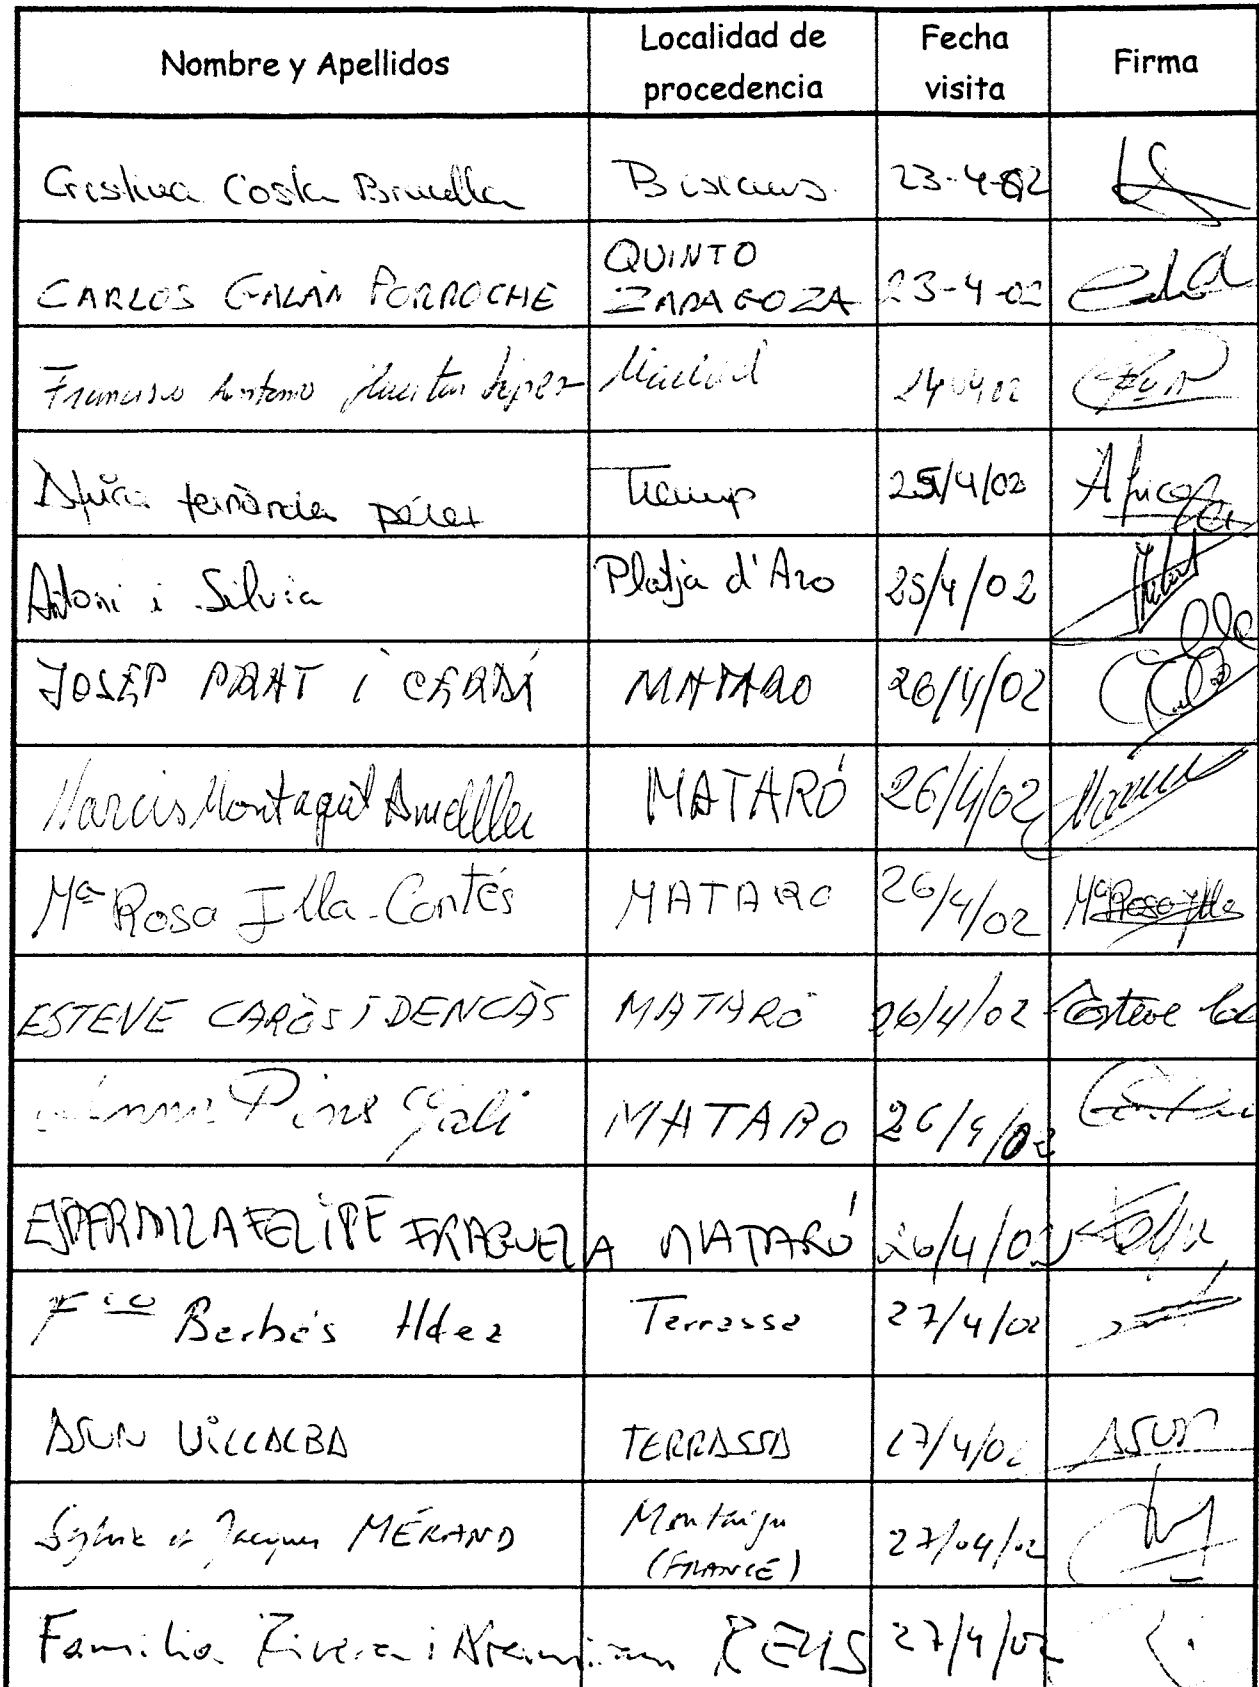 Nombre y Apellidos Localidad de procedencia Fecha visita Firma
Cristina Costa Brunella 23-4-02
CARLOS GALÁN PORROCHE QUINTO ZARAGOZA 23-4-02
Francisco Antonio Huertas López Madrid 24 4 02
fernàndez pérez Tremp 25/4/02 Africa
Antoni i Silvia Platja d'Aro 25/4/02
JOSEP PRAT i CERDÀ MATARO 26/4/02
Narcis Montagut Amellle MATARÓ 26/4/02
Mª Rosa Illa-Cortés MATARO 26/4/02 Mª Rosa Illa
ESTEVE CARÒS I DENCÀS MATARÓ 26/4/02 Esteve
Anna Pins Gali MATARO 26/4/02
FELIPE FRAGUELA MATARÓ 26/4/02
Fco Berbés Hdez Terrassa 27/4/02
ASUN VILLALBA TERRASSA 27/4/02 ASUN
Sylvie et Jacques MÉRAND Montaigu (FRANCE) 27/04/02
Familia Rivera i REUS 27/4/02